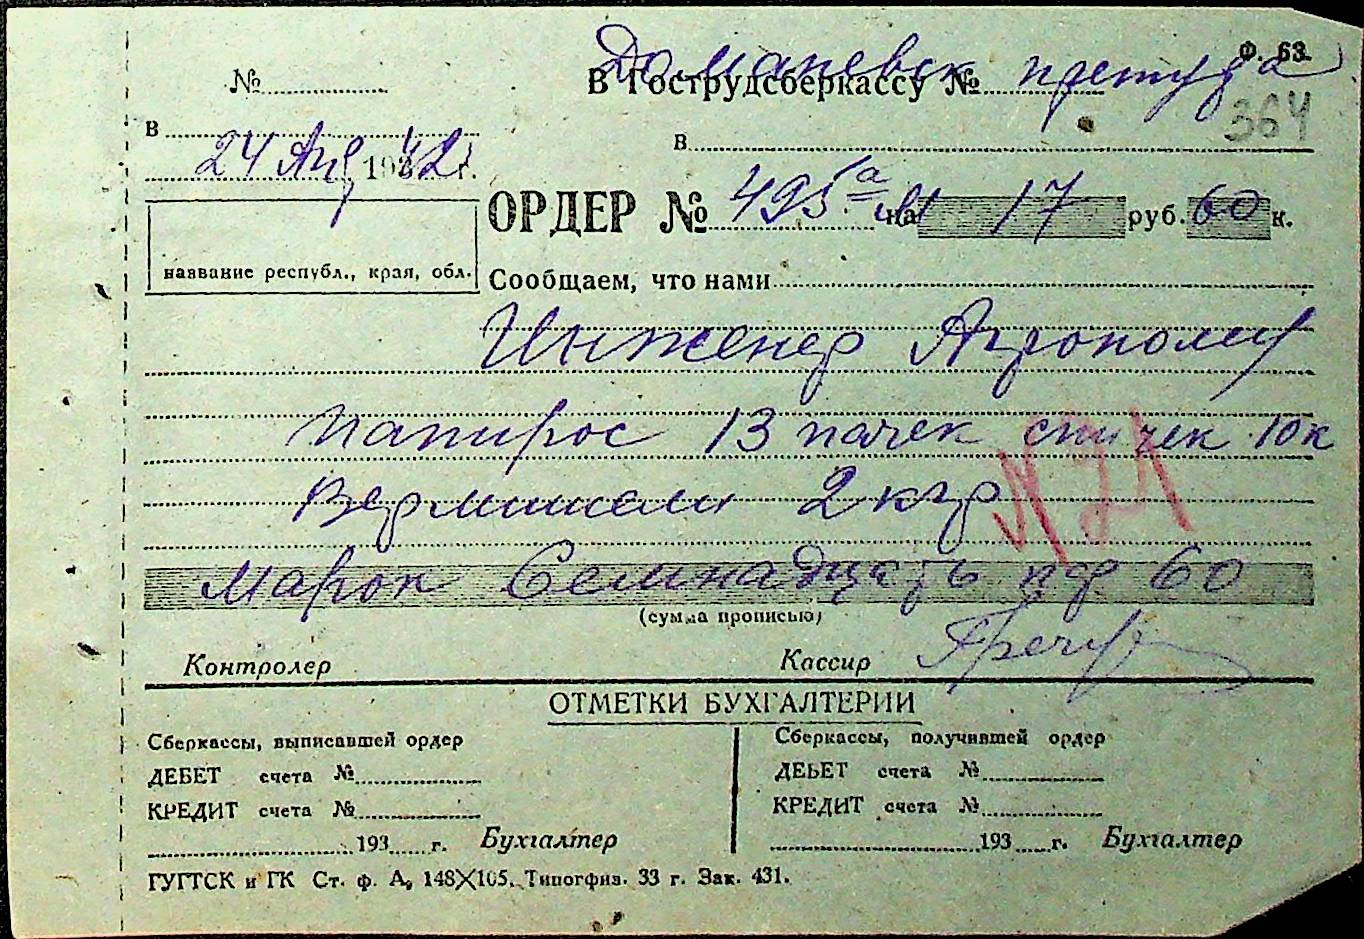 Ф. 63.
Доманевск претура
№ В Гострудсберкассу №
364
в в
24 Авг 1942 г.
ОРДЕР № 495а на 17 руб. 60 к.
название республ., края, обл.
Сообщаем, что нами
Инженер Агроному
папирос 13 пачек спичек 10 к
Вермишели 2 кгр
N 21
Марок Семнадцать пф 60
(сумма прописью)
Контролер Кассир
ОТМЕТКИ БУХГАЛТЕРИИ
Сберкассы, выписавшей ордер Сберкассы, получившей ордер
ДЕБЕТ счета № ДЕБЕТ счета №
КРЕДИТ счета № КРЕДИТ счета №
193 г. Бухгалтер 193 г. Бухгалтер
ГУГТСК и ГК Ст. ф. А, 148X105. Типогфиз. 33 г. Зак. 431.